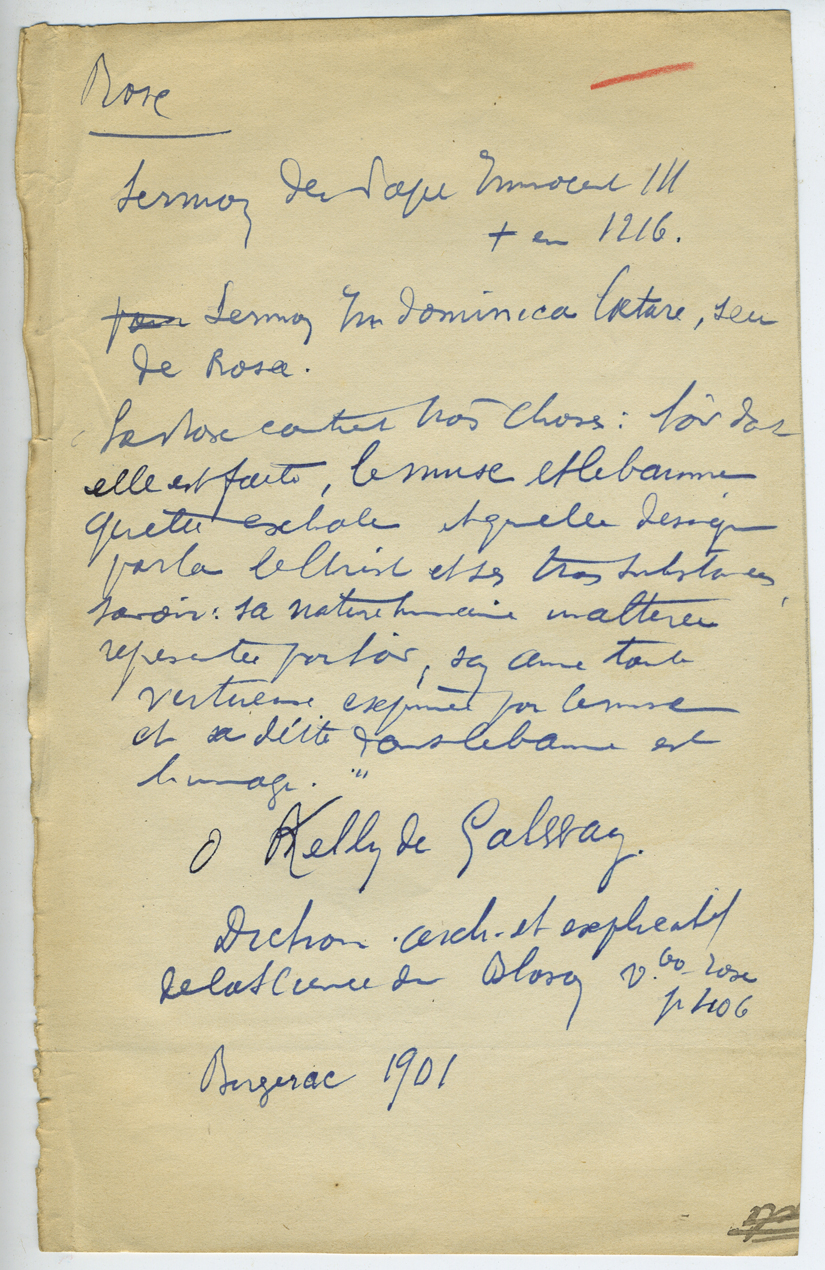 Rose
Sermon du Pape Innocent III
+ en 1216.
Sermon In dominica Lætare, seu
de Rosa.
La Rose contient trois choses : l'or dont
elle est faite, le musc et le baume
qu'elle exhale et qu'elle désigne
par là le Christ et ses trois substances,
savoir : sa nature humaine inaltérée
représentée par l'or, son âme toute
vertueuse exprimée par le musc
et sa déité dont le baume est
l'image. "
O Kelly de Galway.
Diction. arch. et explicatif
de la Science du Blason v.bo rose
p 406
Bergerac 1901